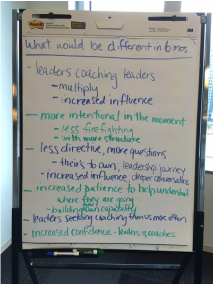 Post-it
3M
What would be different in 6 mos
- leaders coaching leaders
- multiply
- increased influence
- more intentional in the moment
- less firefighting
- with more structure
- less directive, more questions
- their own leadership journey
- increased influence, deeper conversations
- increased patience to help understand
where they are going
- building own capability
- leaders seeking coaching from us more often
- increased confidence - leaders & coaches